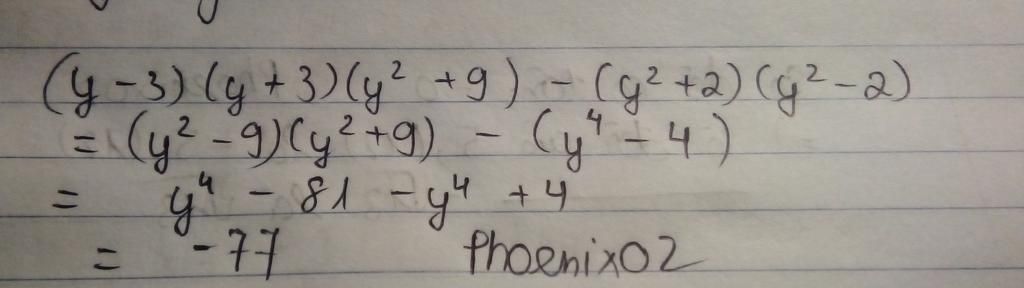 (y-3)(y+3)(y² +9) - (y²+2)(y²-2)
= (y² -9)(y²+9) - (y⁴ - 4)
= y⁴ - 81 - y⁴ + 4
= -77 Phoenix02